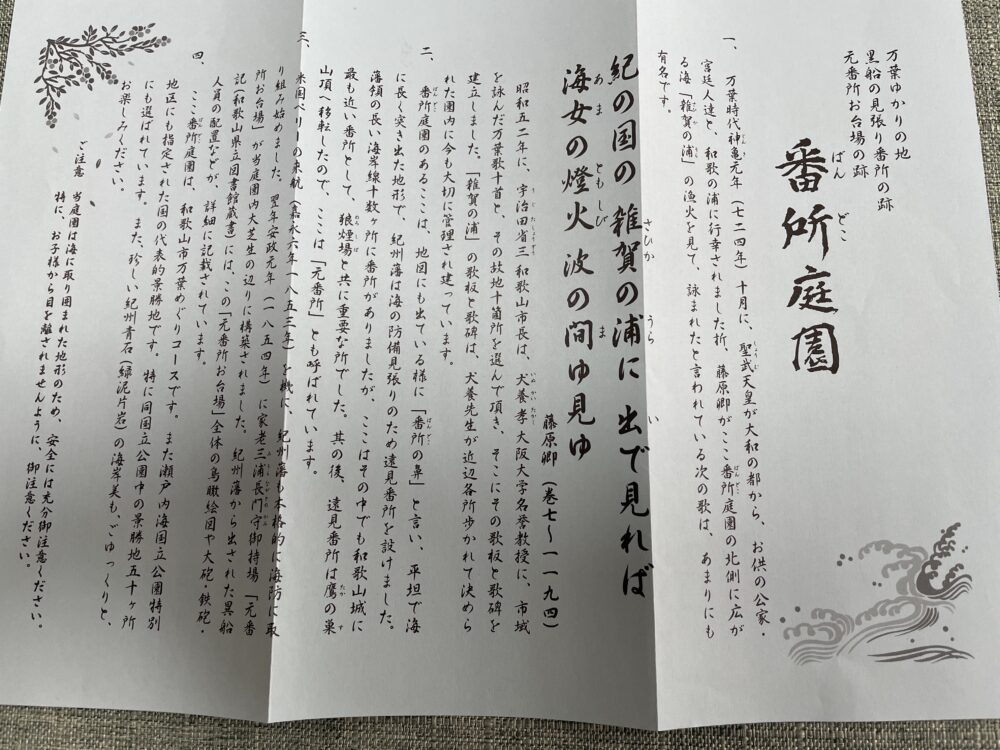 万葉ゆかりの地
黒船の見張り番所の跡
元番所お台場の跡
番所庭園
ばんどこ
一、万葉時代神亀元年（七二四年）十月に、聖武天皇が大和の都から、お供の公家・
宮廷人達と、和歌の浦に行幸されました折、藤原卿がここ番所庭園の北側に広が
る海「雑賀の浦」の漁火を見て、詠まれたと言われている次の歌は、あまりにも
有名です。
紀の国の 雑賀の浦に 出で見れば
さひか うら い
海女の燈火 波の間ゆ見ゆ
あま ともしび ま
藤原卿（巻七〜一一九四）
昭和五二年に、宇治田省三和歌山市長は、犬養孝大阪大学名誉教授に、市域
を詠んだ万葉歌十首と、その故地十箇所を選んで頂き、そこにその歌板と歌碑を
建立しました。「雑賀の浦」の歌板と歌碑は、犬養先生が近辺各所歩かれて決めら
れた園内に今も大切に管理され建っています。
二、番所庭園のあるここは、地図にも出ている様に「番所の鼻」と言い、平坦で海
に長く突き出た地形で、紀州藩は海の防備見張りのため遠見番所を設けました。
藩領の長い海岸線十数ヶ所に番所がありましたが、ここはその中でも和歌山城に
最も近い番所として、狼煙場と共に重要な所でした。其の後、遠見番所は鷹の巣
山頂へ移転したので、ここは「元番所」とも呼ばれています。
三、米国ペリーの来航（嘉永六年一八五三年）を機に、紀州藩も本格的に海防に取
り組み始めました。翌年安政元年（一八五四年）に家老三浦長門守御持場「元番
所お台場」が当庭園内大芝生の辺りに構築されました。紀州藩から出された異船
記（和歌山県立図書館蔵書）には、この「元番所お台場」全体の鳥瞰絵図や大砲・鉄砲・
人員の配置などが、詳細に記載されています。
四、ここ番所庭園は、和歌山市万葉めぐりコースです。また瀬戸内海国立公園特別
地区にも指定された国の代表的景勝地です。特に同国立公園中の景勝地五十ヶ所
にも選ばれています。また、珍しい紀州青石（緑泥片岩）の海岸美も、ごゆっくりと、
お楽しみください。
ご注意 当庭園は海に取り囲まれた地形のため、安全には充分御注意ください。
特に、お子様から目を離されませんように、御注意ください。